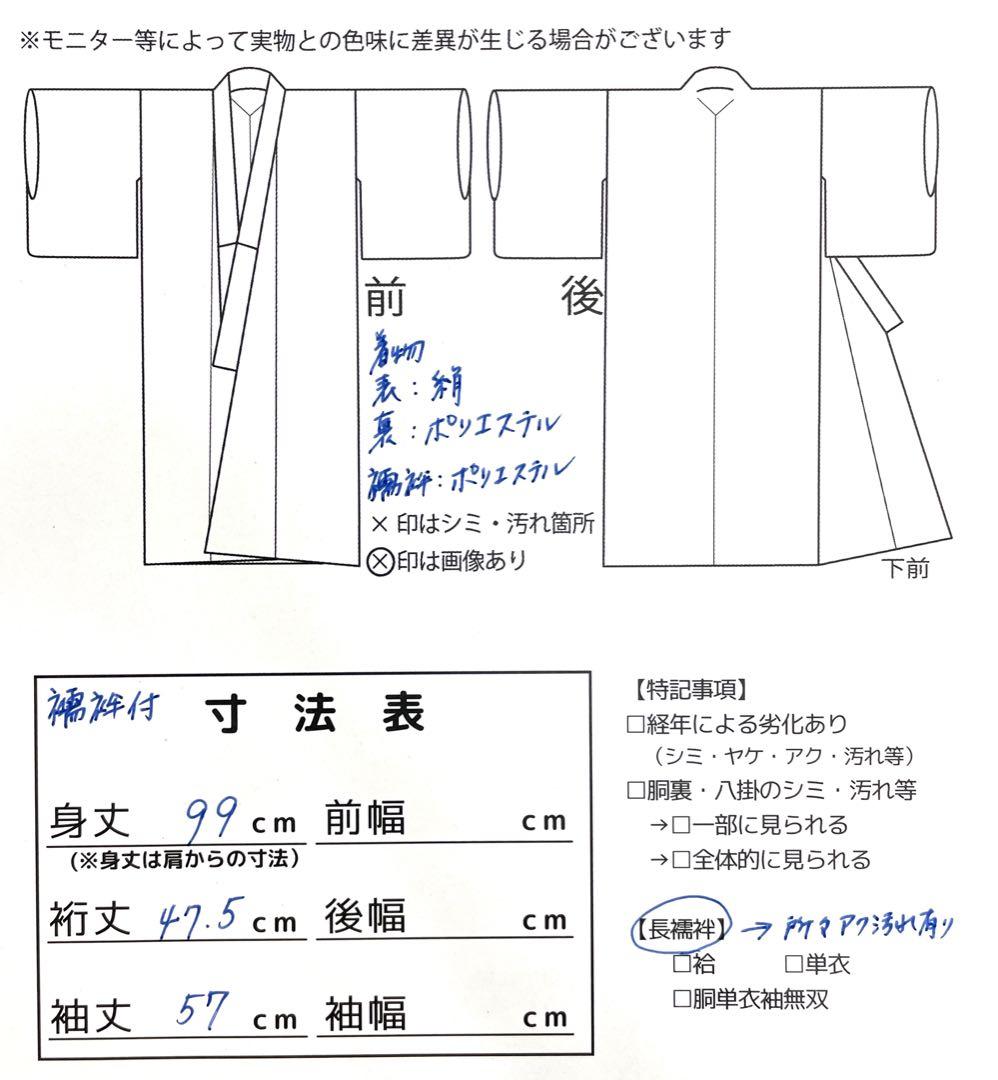 ※モニター等によって実物との色味に差異が生じる場合がございます
前
後
着物
表：絹
裏：ポリエステル
襦袢：ポリエステル
×印はシミ・汚れ箇所
⊗印は画像あり
下前
襦袢付 寸法表
身丈 99 cm 前幅 cm
(※身丈は肩からの寸法)
裄丈 47.5 cm 後幅 cm
袖丈 57 cm 袖幅 cm
【特記事項】
□経年による劣化あり
（シミ・ヤケ・アク・汚れ等）
□胴裏・八掛のシミ・汚れ等
→□一部に見られる
→□全体的に見られる
【長襦袢】→所々アク汚れ有り
□袷 □単衣
□胴単衣袖無双